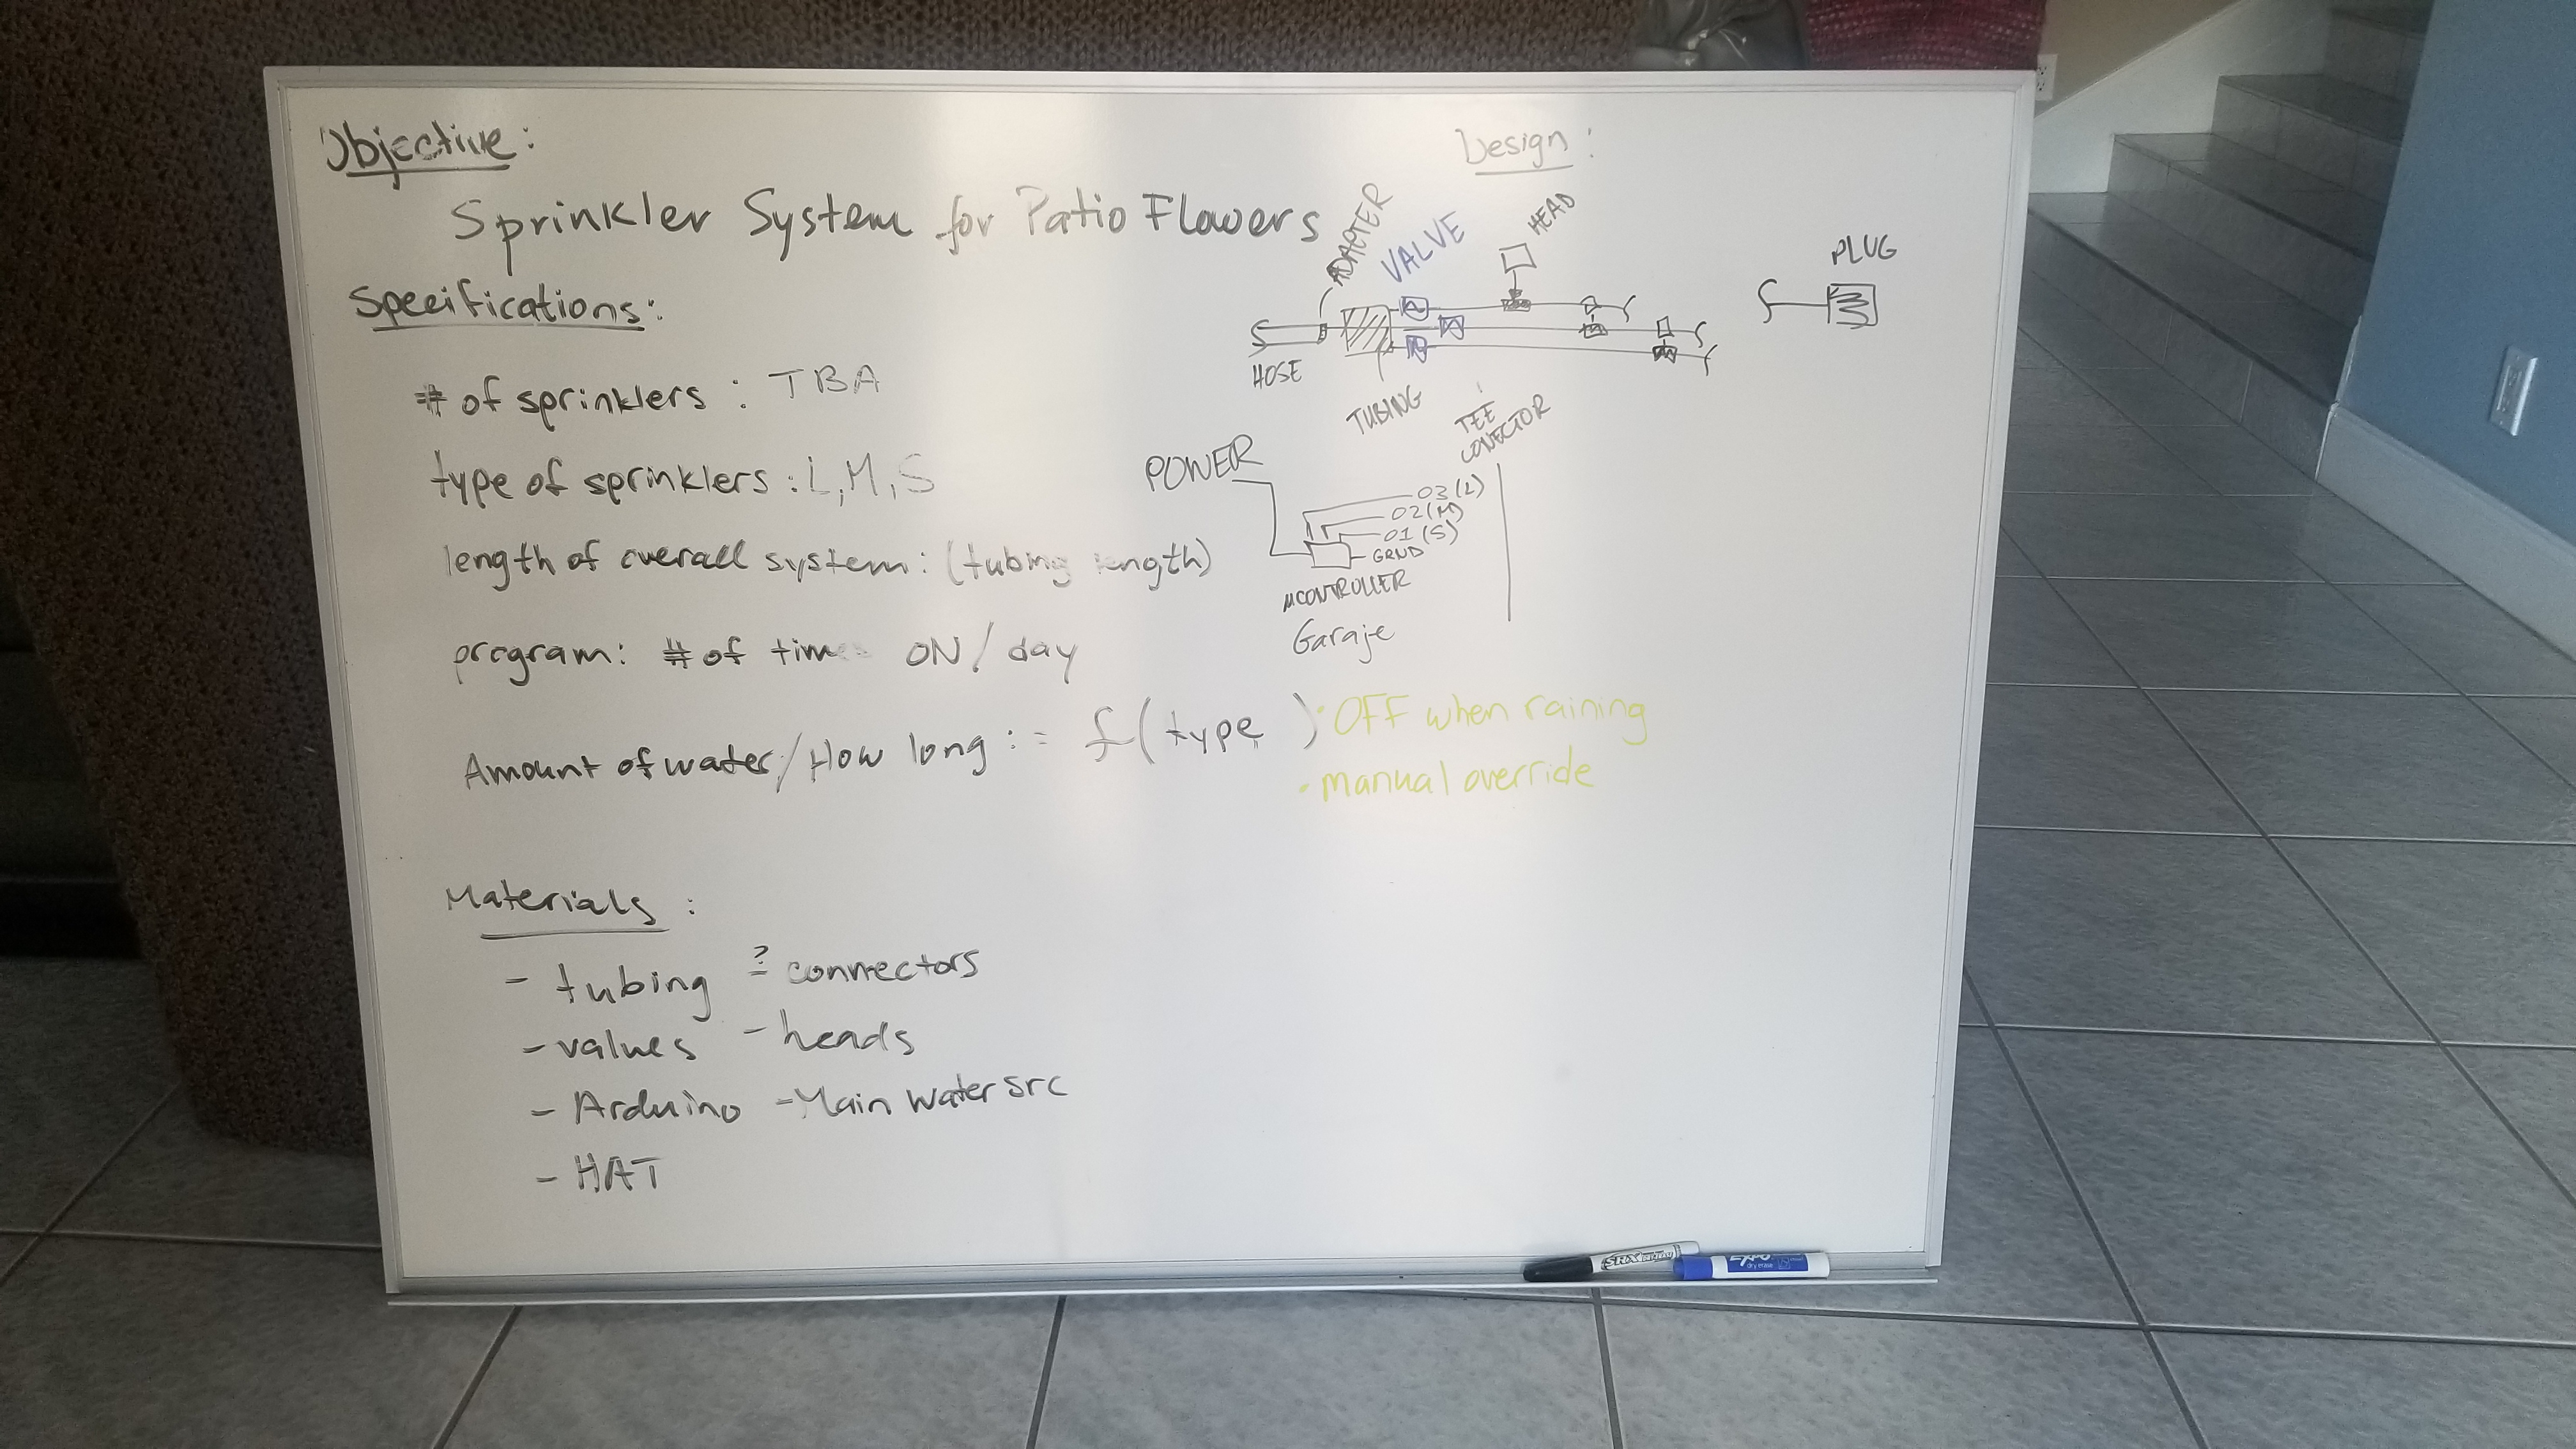 Objective:
Sprinkler System for Patio Flowers
Specifications:
# of sprinklers : TBA
type of sprinklers : L, M, S
length of overall system: (tubing length)
program: # of times ON / day
Amount of water/How long : = f(type )
• OFF when raining
• manual override
Materials :
- tubing
- values
- Arduino
- HAT
? - connectors
- heads
- Main water src
Design :
ADAPTER
VALVE
HEAD
PLUG
HOSE
TUBING
TEE
CONECTOR
POWER
03 (L)
02 (M)
01 (S)
GRND
µCONTROLLER
Garaje
SRX
EXPO
dry erase